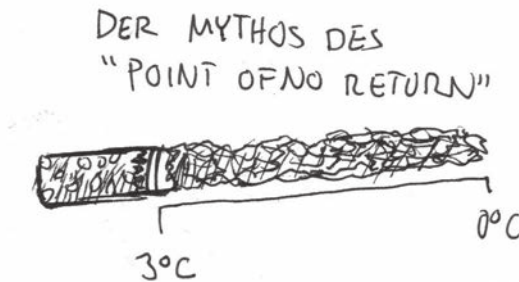 DER MYTHOS DES
"POINT OF NO RETURN"
0°C
3°C